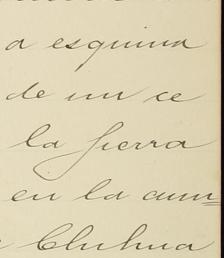 a esquina
de un ce
la Sierra
en la cum=
Chihua